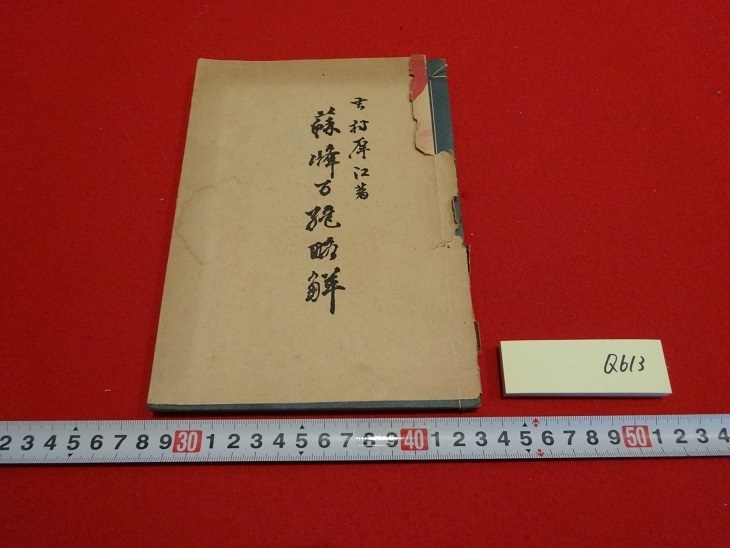 吉村 江著
蘇峰百絶略解
Q613
2 3 4 5 6 7 8 9 30 1 2 3 4 5 6 7 8 9 40 1 2 3 4 5 6 7 8 9 50 1 2 3 4